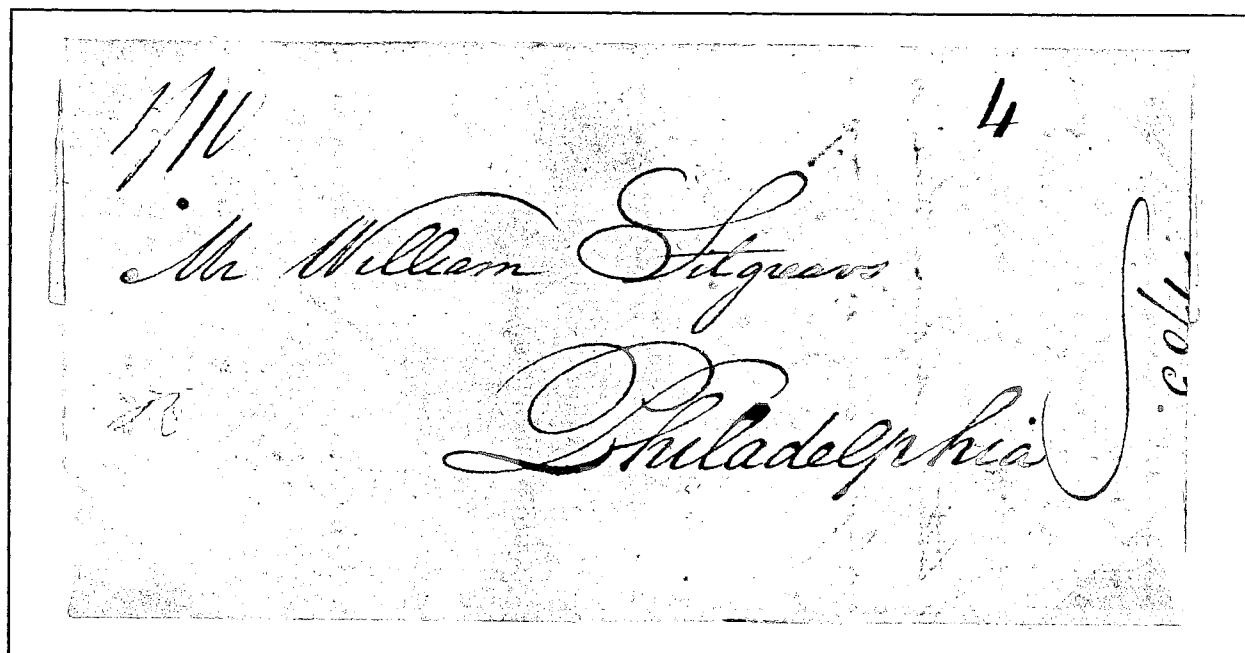 1/10 4
Mr William Sitgreaves
Philadelphia